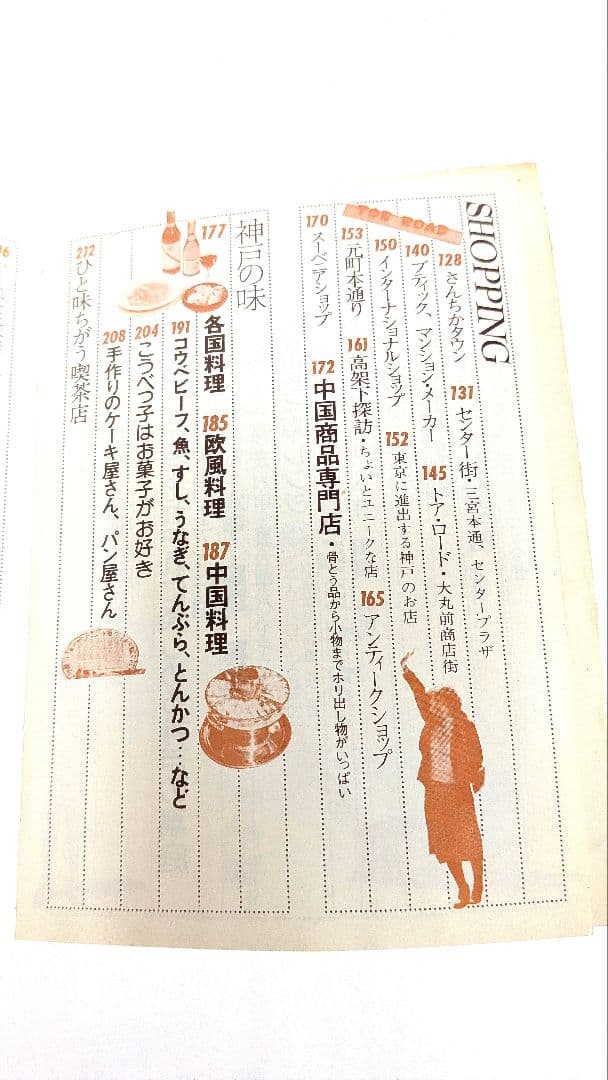 SHOPPING
128 さんちかタウン
131 センター街・三宮本通、センタープラザ
140 ブティック、マンション・メーカー
145 トア・ロード・大丸前商店街
TOR ROAD
150 インターナショナルショップ
152 東京に進出する神戸のお店
153 元町本通り
161 高架下探訪・ちょいとユニークな店
165 アンティークショップ
170 スーベニアショップ
172 中国商品専門店・骨とう品から小物までホリ出し物がいっぱい
神戸の味
177 各国料理
185 欧風料理
187 中国料理
191 コウベビーフ、魚、すし、うなぎ、てんぷら、とんかつ…など
204 こうべっ子はお菓子がお好き
208 手作りのケーキ屋さん、パン屋さん
212 ひと味ちがう喫茶店